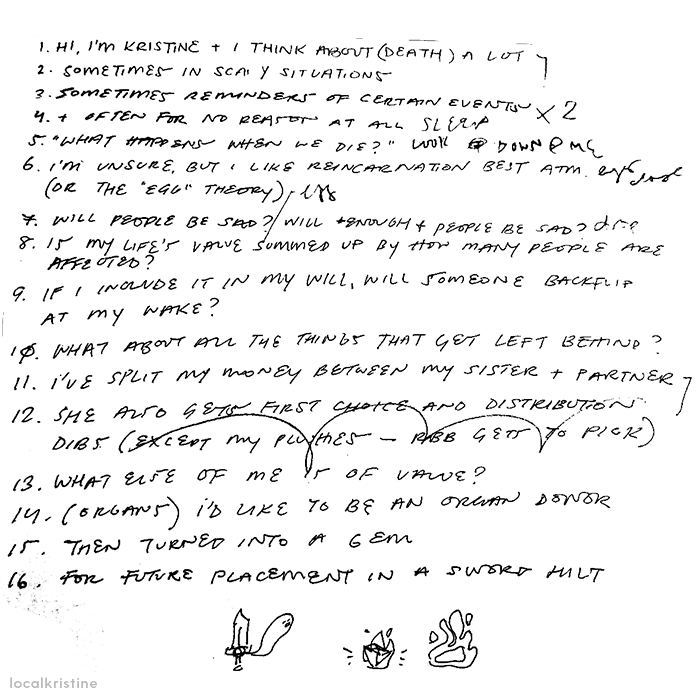 1. HI, I'M KRISTINE + I THINK ABOUT (DEATH) A LOT
2. SOMETIMES IN SCARY SITUATIONS
3. SOMETIMES REMINDERS OF CERTAIN EVENTS X 2
4. + OFTEN FOR NO REASON AT ALL SLEEP
5. "WHAT HAPPENS WHEN WE DIE?" LOOK DOWN @ ME
6. I'M UNSURE, BUT I LIKE REINCARNATION BEST ATM.
(OR THE "EGG" THEORY)
7. WILL PEOPLE BE SAD? / WILL +ENOUGH+ PEOPLE BE SAD?
8. IS MY LIFE'S VALUE SUMMED UP BY HOW MANY PEOPLE ARE
AFFECTED?
9. IF I INCLUDE IT IN MY WILL, WILL SOMEONE BACKFLIP
AT MY WAKE?
10. WHAT ABOUT ALL THE THINGS THAT GET LEFT BEHIND?
11. I'VE SPLIT MY MONEY BETWEEN MY SISTER + PARTNER
12. SHE ALSO GETS FIRST CHOICE AND DISTRIBUTION
DIBS (EXCEPT MY PLUSHIES - ROB GETS TO PICK)
13. WHAT ELSE OF ME IS OF VALUE?
14. (ORGANS) I'D LIKE TO BE AN ORGAN DONOR
15. THEN TURNED INTO A GEM
16. FOR FUTURE PLACEMENT IN A SWORD HILT
localkristine